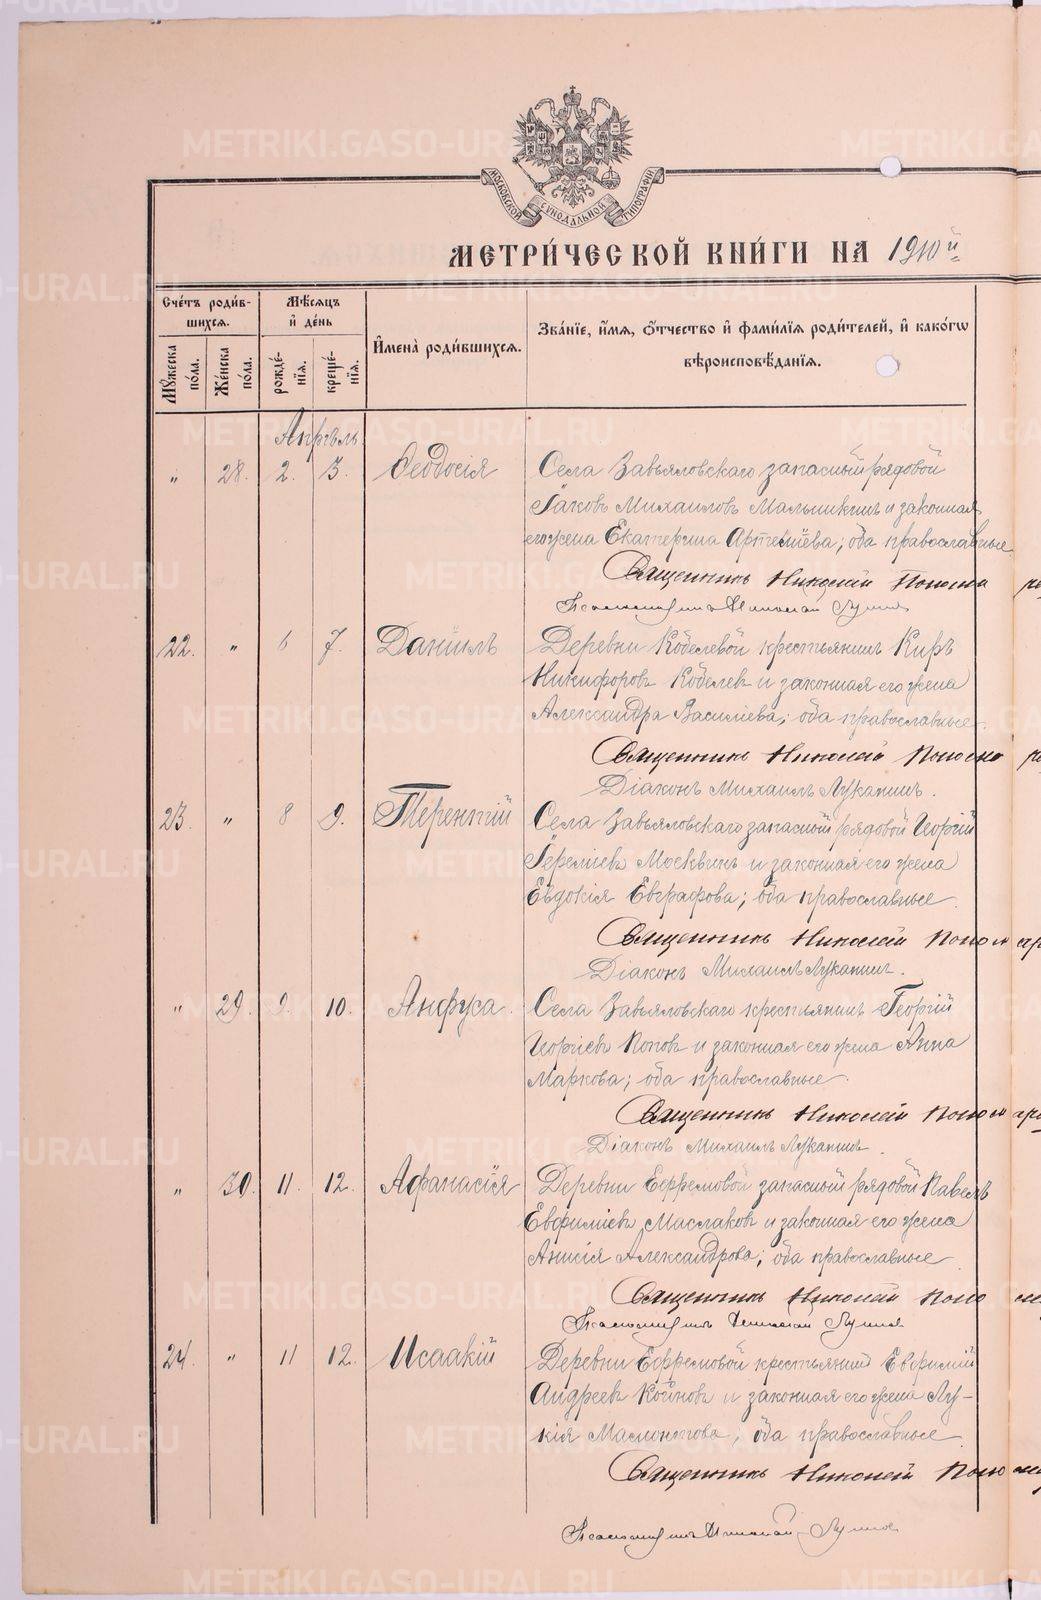 МОСКОВСКОЙ СУНОДАЛЬНОЙ ТИПОГРАФИИ
МЕТРИ́ЧЕСКОЙ КНИ́ГИ НА 1910й
Сче́тъ роди́в-
шихсѧ.
Мꙋ́жеска по́ла.
Же́нска по́ла.
Мѣ́сѧцъ
и҆ де́нь
рожде́-
нїѧ.
креще́-
нїѧ.
И҆мена̀ роди́вшихсѧ.
Зва́нїе, и҆́мѧ, ѻ҆́тчество и҆ фами́лїѧ роди́телей, и҆ како́гѡ
вѣроисповѣ́данїѧ.
Апрѣль
" 28. 2. 3. Ѳеодосія
Села Завьяловскаго запасный рядовой
Іаковъ Михаиловъ Малышкинъ и законная
его жена Екатерина Артеміева; оба православные
Священникъ Николай Поном
Псаломщикъ Николай
22. " 6 7. Даніилъ
Деревни Кобелевой крестьянинъ Киръ
Никифоровъ Кобелевъ и законная его жена
Александра Василіева; оба православные.
Священникъ Николай Поном
Діаконъ Михаилъ Лукания.
23. " 8 9. Терентій
Села Завьяловскаго запасный рядовой Георгій
Іереміевъ Москвинъ и законная его жена
Евдокія Евграфова; оба православные.
Священникъ Николай Пономар
Діаконъ Михаилъ Лукания.
" 29. 9. 10. Анфуса.
Села Завьяловскаго крестьянинъ Георгій
Георгіевъ Поповъ и законная его жена Анна
Маркова; оба православные.
Священникъ Николай Пономар
Діаконъ Михаилъ Лукания.
" 30. 11. 12. Афанасія
Деревни Ефремовой запасный рядовой Павелъ
Евфиміевъ Маслаковъ и законная его жена
Анисія Александрова; оба православные.
Священникъ Николай Поном
Псаломщикъ Николай
24. " 11 12. Исаакій
Деревни Ефремовой крестьянинъ Евфимій
Андреевъ и законная его жена Лу-
кія Мамонтова; оба православные.
Священникъ Николай Поном
Псаломщикъ Николай
METRIKI.GASO-URAL.RU